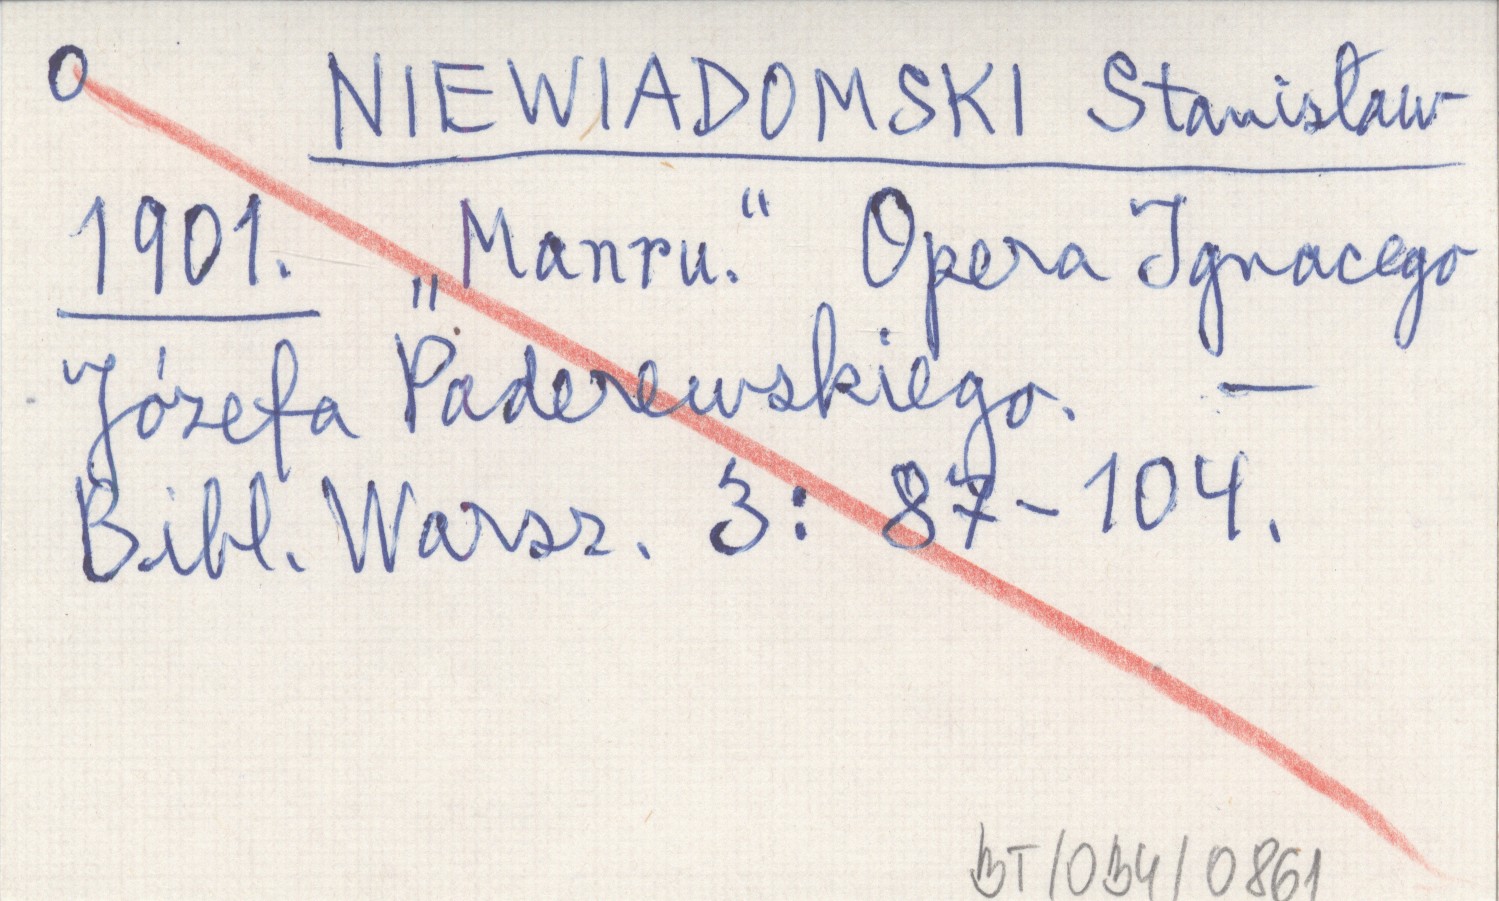 O NIEWIADOMSKI Stanisław
1901. „Manru.“ Opera Ignacego
Józefa Paderewskiego. —
Bibl. Warsz. 3: 87-104.
BT/OB4/0861